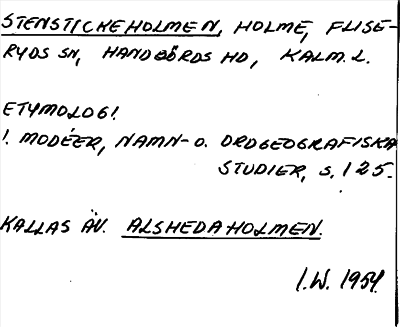 STENSTICKEHOLMEN, HOLME, FLISE-
RYDS SN, HANDBÖRDS HD, KALM. L.
ETYMOLOGI.
I. MODÉER, NAMN- O. ORDGEOGRAFISKA
STUDIER, S. 125.
KALLAS ÄV. ALSHEDAHOLMEN.
I.W. 1954.